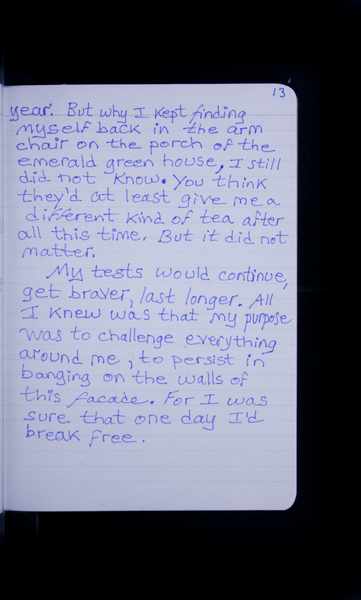 13
year. But why I kept finding
myself back in the arm
chair on the porch of the
emerald green house, I still
did not know. You think
they'd at least give me a
different kind of tea after
all this time. But it did not
matter.
My tests would continue,
get braver, last longer. All
I knew was that my purpose
was to challenge everything
around me, to persist in
banging on the walls of
this facade. For I was
sure that one day I'd
break free.